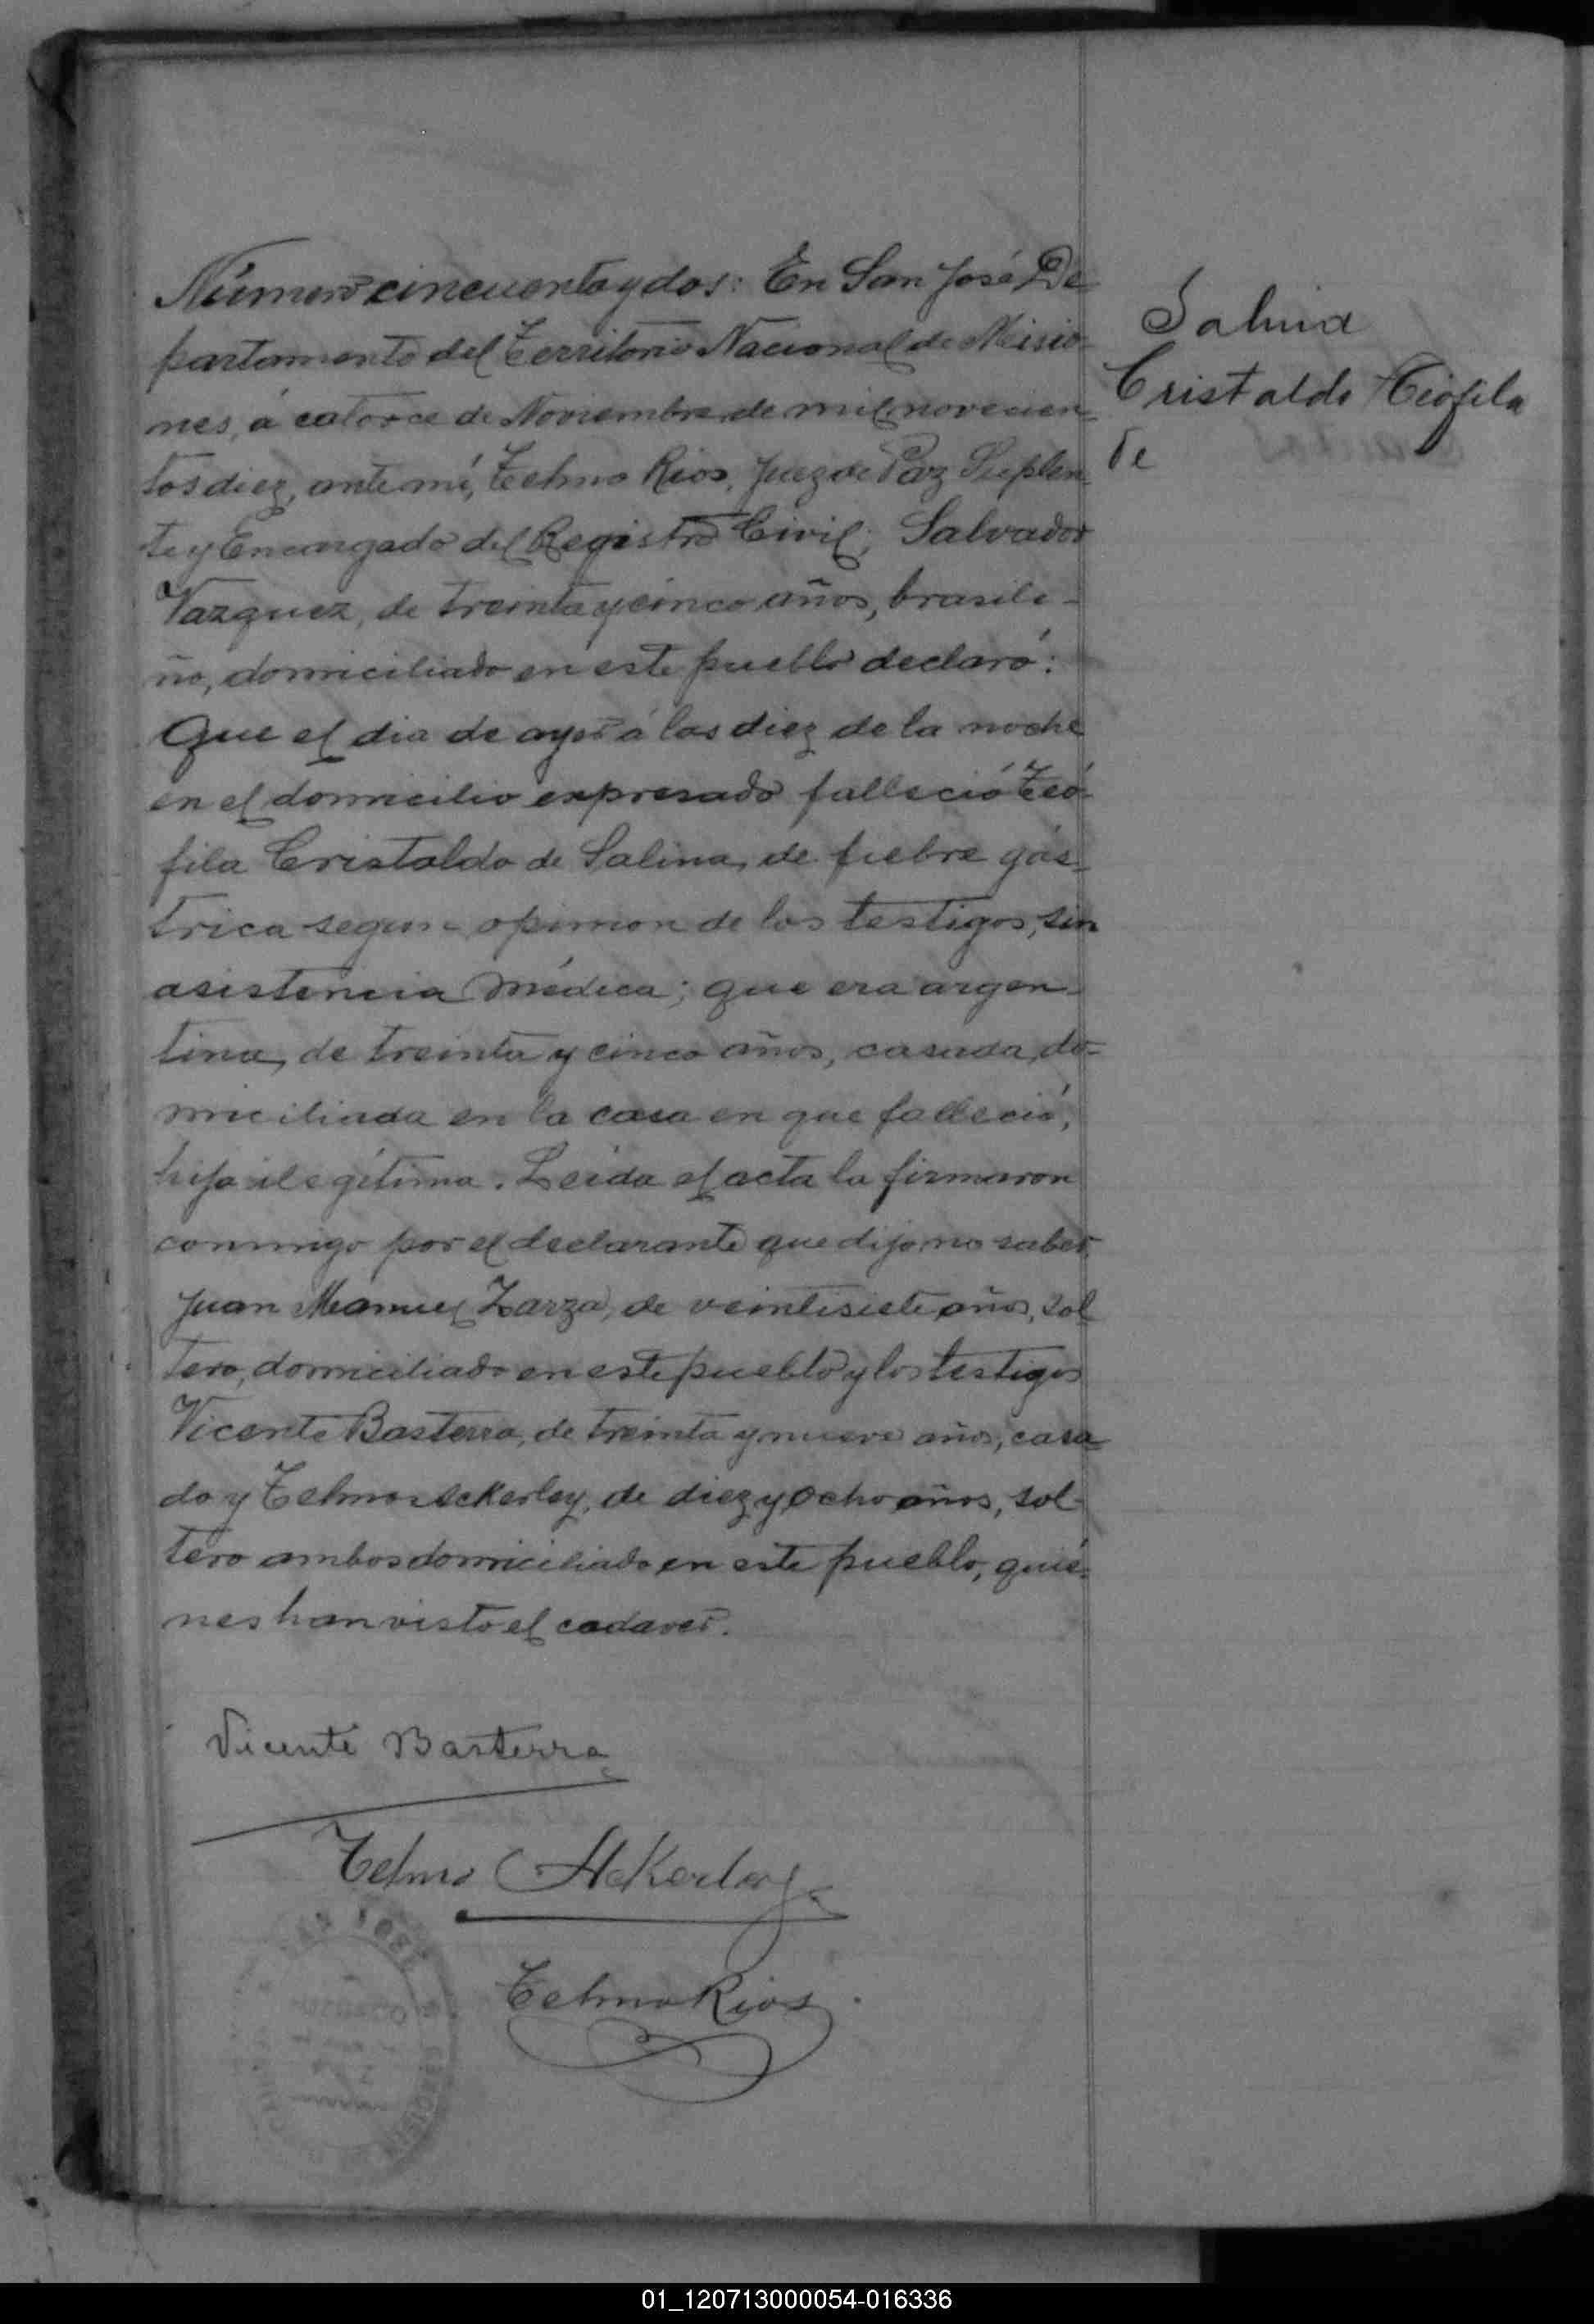 Número cincuenta y dos: En San José De
partamento del Territorio Nacional de Misio-
nes, á catorce de Noviembre de mil novecien-
tos diez, ante mí, Telmo Rios, Juez de Paz Suplen
te y Encargado del Registro Civil; Salvador
Vazquez, de treinta y cinco años, brasile-
ño, domiciliado en este pueblo declaró:
Que el dia de ayer á las diez de la noche
en el domicilio expresado falleció Teó-
fila Cristaldo de Salina, de fiebre gás-
trica segun opinion de los testigos, sin
asistencia médica; que era argen-
tina, de treinta y cinco años, casada, do-
miciliada en la casa en que falleció,
hija ilegítima. Leida el acta la firmaron
conmigo por el declarante que dijo no saber,
Juan Manuel Zarza, de veintisiete años, sol
tero, domiciliado en este pueblo y los testigos
Vicente Basterra, de treinta y nueve años, casa-
do y Telmo Ackerley, de diez y ocho años, sol-
tero ambos domiciliado en este pueblo, quié-
nes han visto el cadaver.
Salina
Cristaldo Teófila
de
Vicente Basterra
Telmo Ackerley
Telmo Rios.
01_120713000054-016336